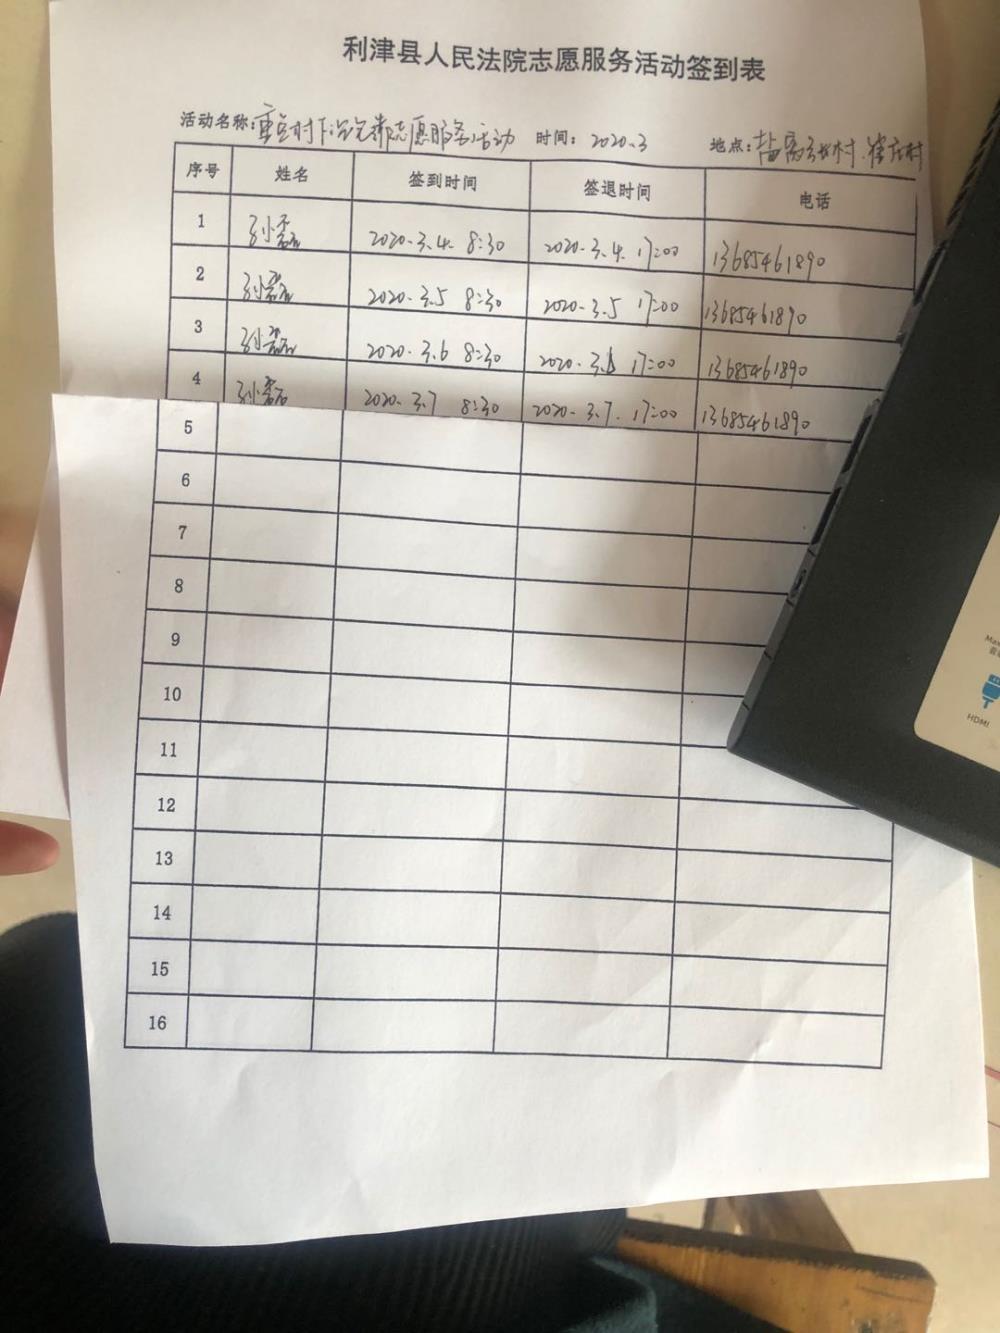 利津县人民法院志愿服务活动签到表
活动名称: 志愿服务活动 时间: 2020.3 地点: 村
序号 姓名 签到时间 签退时间 电话
1 孙磊 2020.3.4. 8:30 2020.3.4. 17:00 13685461890
2 孙磊 2020.3.5 8:30 2020.3.5 17:00 13685461890
3 孙磊 2020.3.6 8:30 2020.3.6 17:00 13685461890
4 孙磊 2020.3.7 8:30 2020.3.7. 17:00 13685461890
5
6
7
8
9
10
11
12
13
14
15
16
HDMI